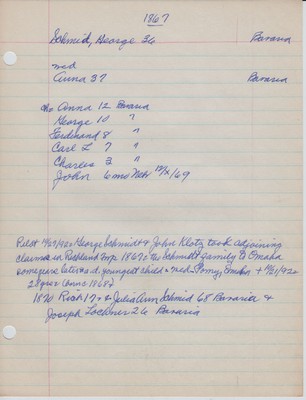 1867
Schmid, George 36 Bavaria
md
Anna 37 Bavaria
ch Anna 12 Bavaria
George 10 "
Ferdinand 8 "
Carl L 7 "
Charles 3 "
John 6 mo Nebr
George Schmidt & John Klotz took adjoining
claims in Richland Twp 1867. The Schmidt family to Omaha
some years later & d. youngest child & med Omaha
28 yrs (since 1868)
1870 Rich 17 & Julia Ann Schmid 68 Bavaria &
Joseph Lochner 26 Bavaria